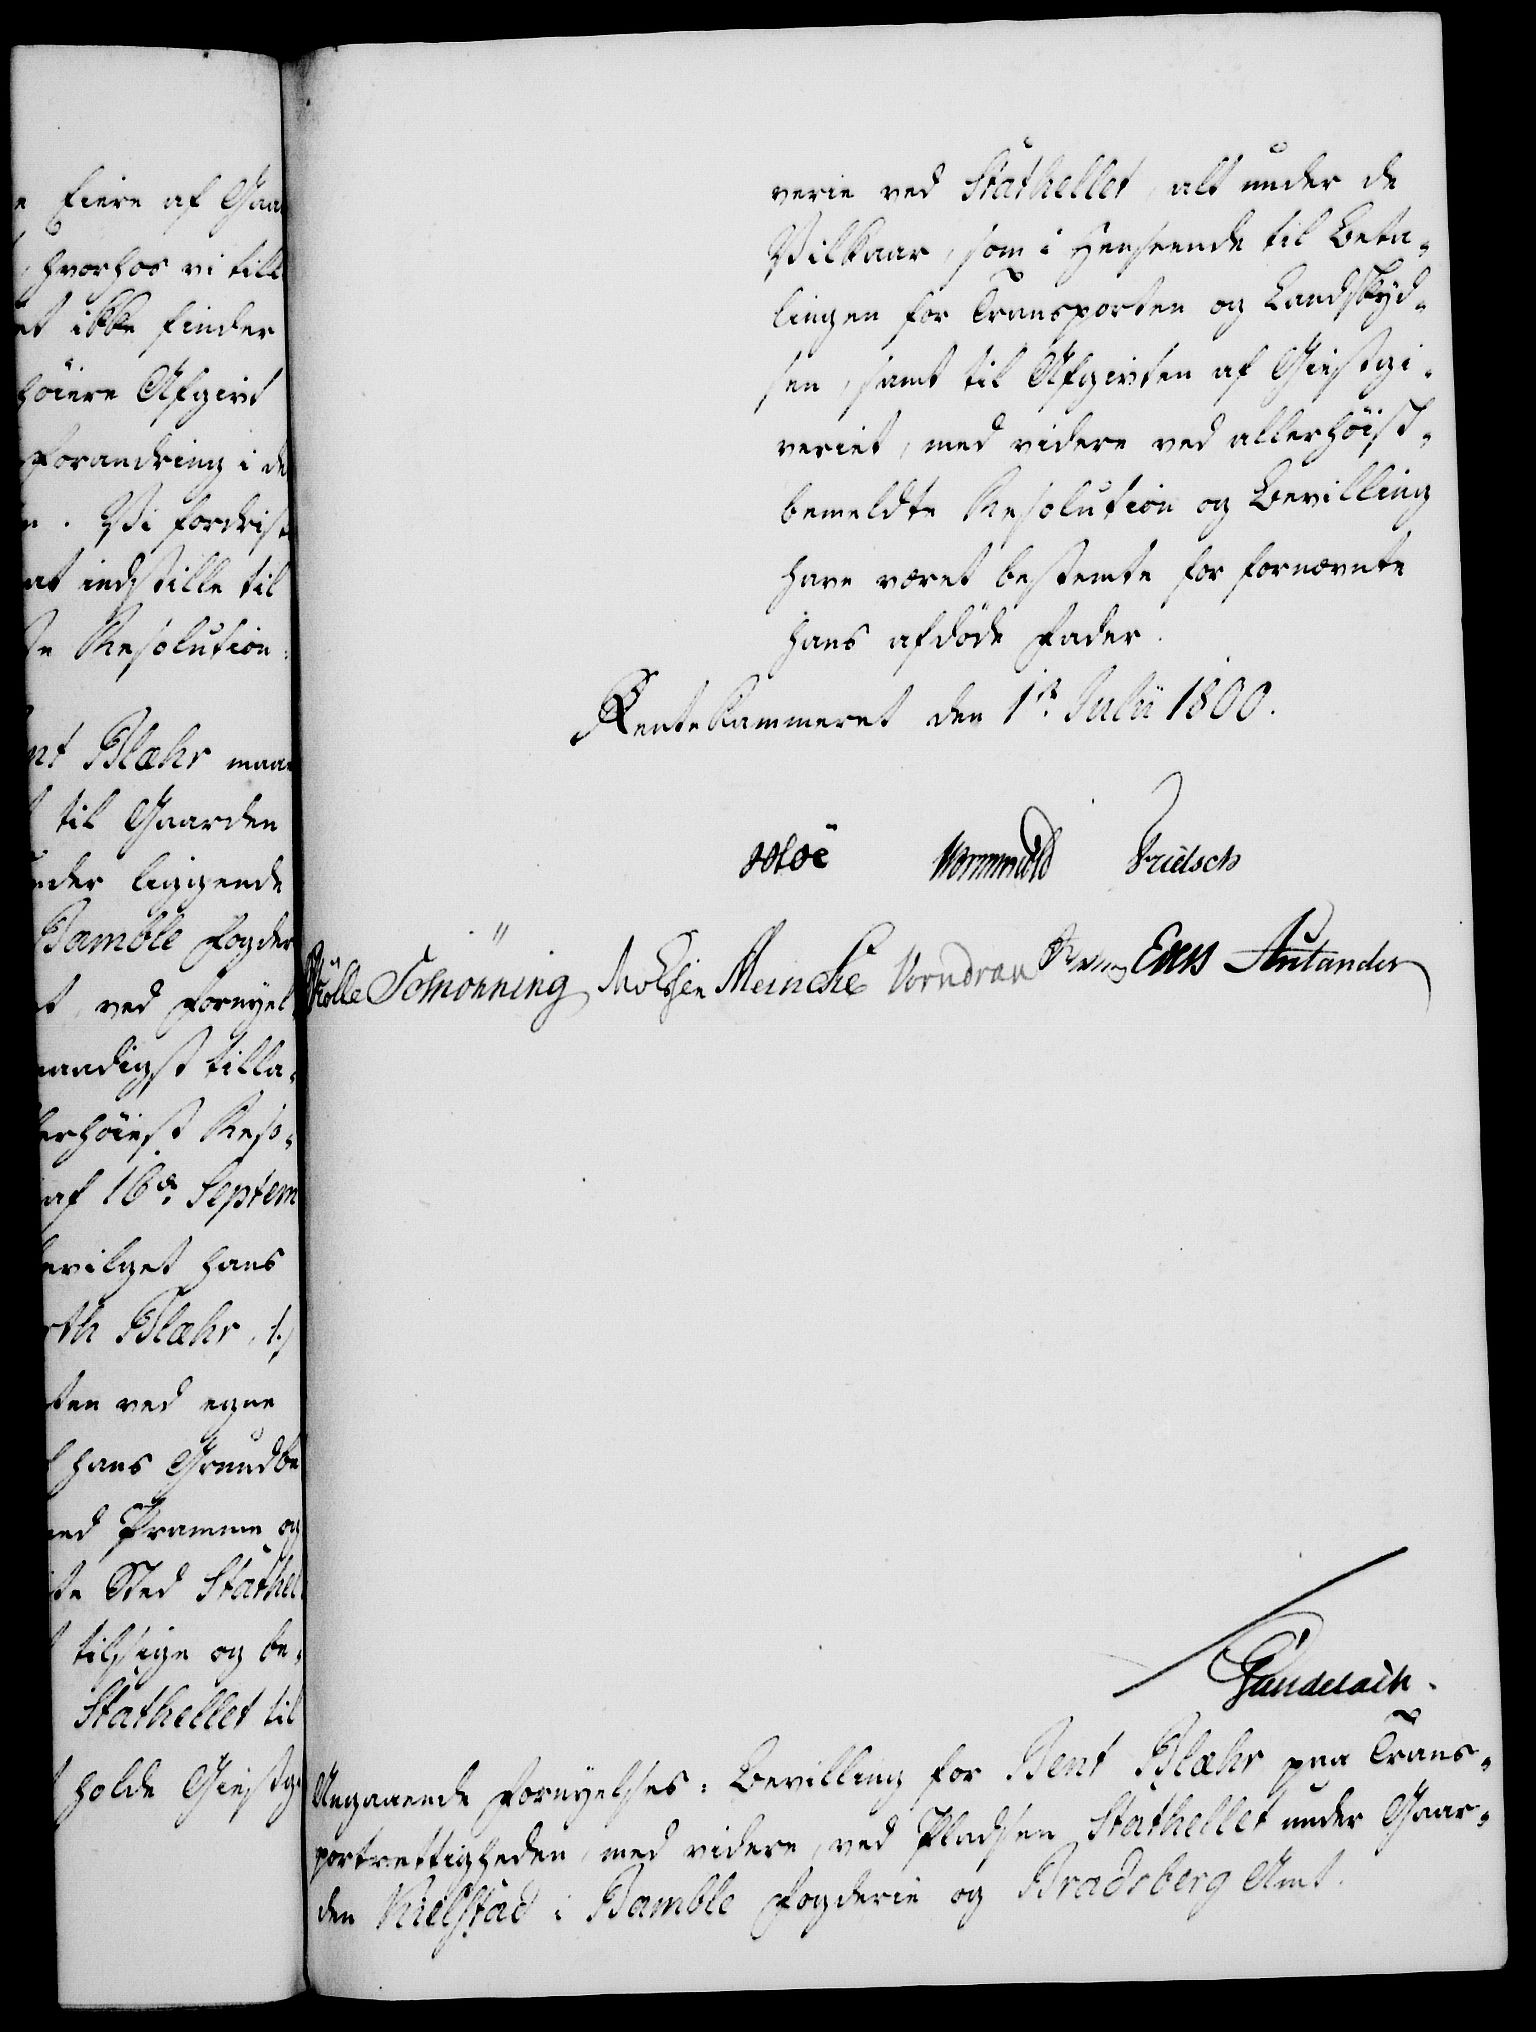 e Eiere af Gaa
, hvorhos vi till
et ikke finder
höiere Afgivt
Forandring i de
e. Vi fordrist
at indstille til
se Resolution:
nt Blæhr maae
til Gaarden
under liggende
Bamble Fogder
t, ved Fornyel
naadigst tilla-
lerhöiest Reso-
af 16de Septem
bevilget hans
rth Blæhr, 1.)
ten ved egne
hans Grundbe
med Pramme og
te Sted Stathel
tilsige og be-
Stathellet til
holde Giestgi
verie ved Stathellet, alt under de
Vilkaar, som i Henseende til Beta-
lingen for Transporten og Landskyd-
sen, samt til Afgivten af Giestgi-
veriet, med videre ved allerhöist-
bemeldte Resolution og Bevilling
have været bestemte for fornævnte
hans afdöde Fader.
Rentekammeret den 1ste Julii 1800.
Hoë Wormskiold Frietsch
Rölle Schiönning Meincke Vorndran Eers
Pandelach.
Angaaende Fornyelses-Bevilling for Bent Blæhr paa Trans-
portrettigheden, med videre, ved Pladsen Stathellet under Gaar-
den Kielstad i Bamble Fogderie og Bradsberg Amt.